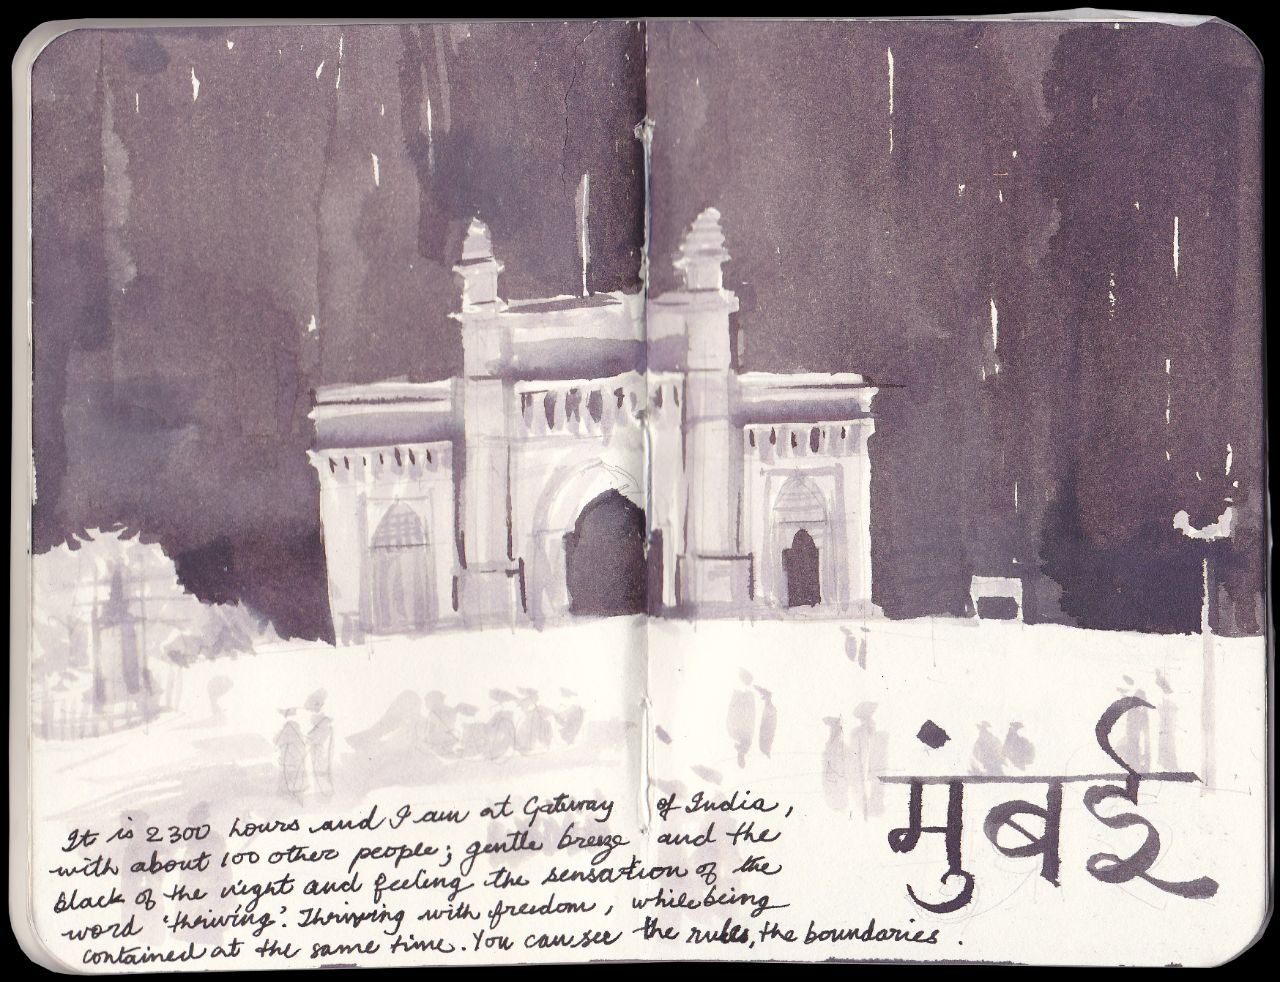 It is 2300 hours and I am at Gateway of India,
with about 100 other people; gentle breeze and the
black of the night and feeling the sensation of the
word 'thriving'. Thriving with freedom, while being
contained at the same time. You can see the rules, the boundaries.
मुंबई